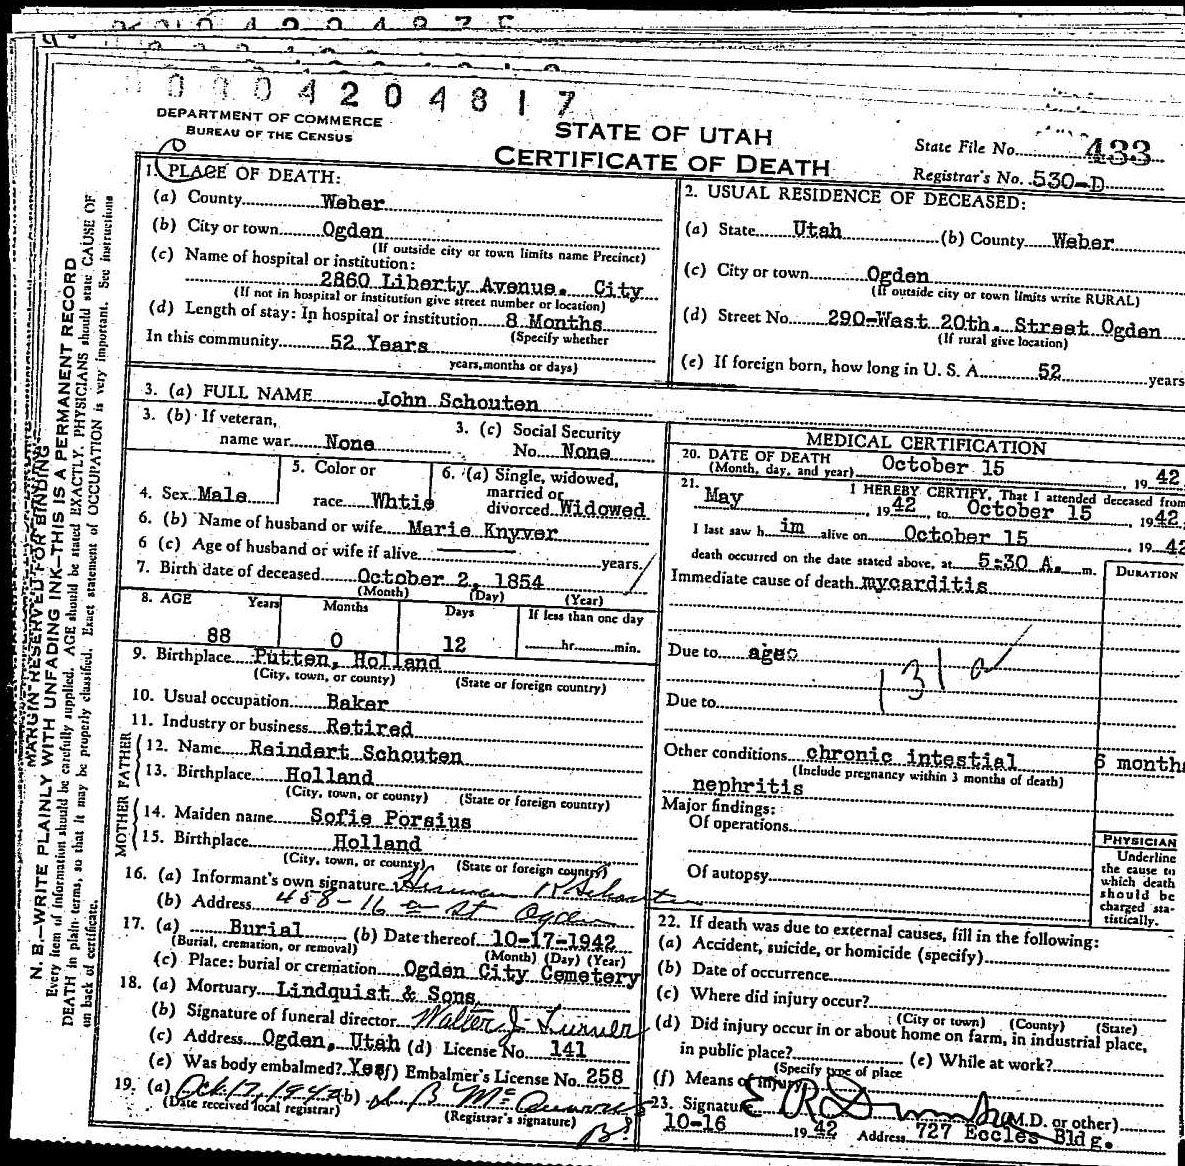 0004204817
DEPARTMENT OF COMMERCE
BUREAU OF THE CENSUS
STATE OF UTAH
CERTIFICATE OF DEATH
State File No. 433
Registrar's No. 530-D
MARGIN RESERVED FOR BINDING
N. B.—WRITE PLAINLY WITH UNFADING INK—THIS IS A PERMANENT RECORD
Every item of information should be carefully supplied. AGE should be stated EXACTLY. PHYSICIANS should state CAUSE OF
DEATH in plain terms, so that it may be properly classified. Exact statement of OCCUPATION is very important. See instructions
on back of certificate.
1. PLACE OF DEATH:
(a) County Weber
(b) City or town Ogden
(If outside city or town limits name Precinct)
(c) Name of hospital or institution:
2860 Liberty Avenue. City
(If not in hospital or institution give street number or location)
(d) Length of stay: In hospital or institution 8 Months
(Specify whether
In this community 52 Years
years, months or days)
2. USUAL RESIDENCE OF DECEASED:
(a) State Utah (b) County Weber
(c) City or town Ogden
(If outside city or town limits write RURAL)
(d) Street No. 290-West 20th. Street Ogden
(If rural give location)
(e) If foreign born, how long in U. S. A. 52 years
3. (a) FULL NAME John Schouten
3. (b) If veteran,
name war None
3. (c) Social Security
No. None
4. Sex Male
5. Color or
race Whtie
6. (a) Single, widowed,
married or
divorced Widowed
6. (b) Name of husband or wife Marie Knyver
6 (c) Age of husband or wife if alive years.
7. Birth date of deceased October 2, 1854
(Month) (Day) (Year)
8. AGE Years Months Days If less than one day
88 0 12 hr. min.
9. Birthplace Putten, Holland
(City, town, or county) (State or foreign country)
10. Usual occupation Baker
11. Industry or business Retired
FATHER
12. Name Reindert Schouten
13. Birthplace Holland
(City, town, or county) (State or foreign country)
MOTHER
14. Maiden name Sofie Porsius
15. Birthplace Holland
(City, town, or county) (State or foreign country)
16. (a) Informant's own signature Schouten
(b) Address 458-16 St Ogden
17. (a) Burial (b) Date thereof 10-17-1942
(Burial, cremation, or removal) (Month) (Day) (Year)
(c) Place: burial or cremation Ogden City Cemetery
18. (a) Mortuary Lindquist & Sons
(b) Signature of funeral director Walter J. Turner
(c) Address Ogden, Utah (d) License No. 141
(e) Was body embalmed? Yes (f) Embalmer's License No. 258
19. (a) Oct. 17, 1942 (b)
(Date received local registrar) (Registrar's signature)
MEDICAL CERTIFICATION
20. DATE OF DEATH
(Month, day, and year) October 15 19 42
21. I HEREBY CERTIFY, That I attended deceased from
May , 19 42 to October 15 , 19 42
I last saw h im alive on October 15 , 19 42
death occurred on the date stated above, at 5:30 A. m.
DURATION
Immediate cause of death mycarditis
Due to age
131 a
Due to
Other conditions chronic intestial 6 months
(Include pregnancy within 3 months of death)
nephritis
Major findings:
Of operations
Of autopsy
PHYSICIAN
Underline
the cause to
which death
should be
charged sta-
tistically.
22. If death was due to external causes, fill in the following:
(a) Accident, suicide, or homicide (specify)
(b) Date of occurrence
(c) Where did injury occur?
(City or town) (County) (State)
(d) Did injury occur in or about home on farm, in industrial place,
in public place? (e) While at work?
(Specify type of place
(f) Means of injury
23. Signature E R (M.D. or other)
10-16 19 42 Address 727 Eccles Bldg.